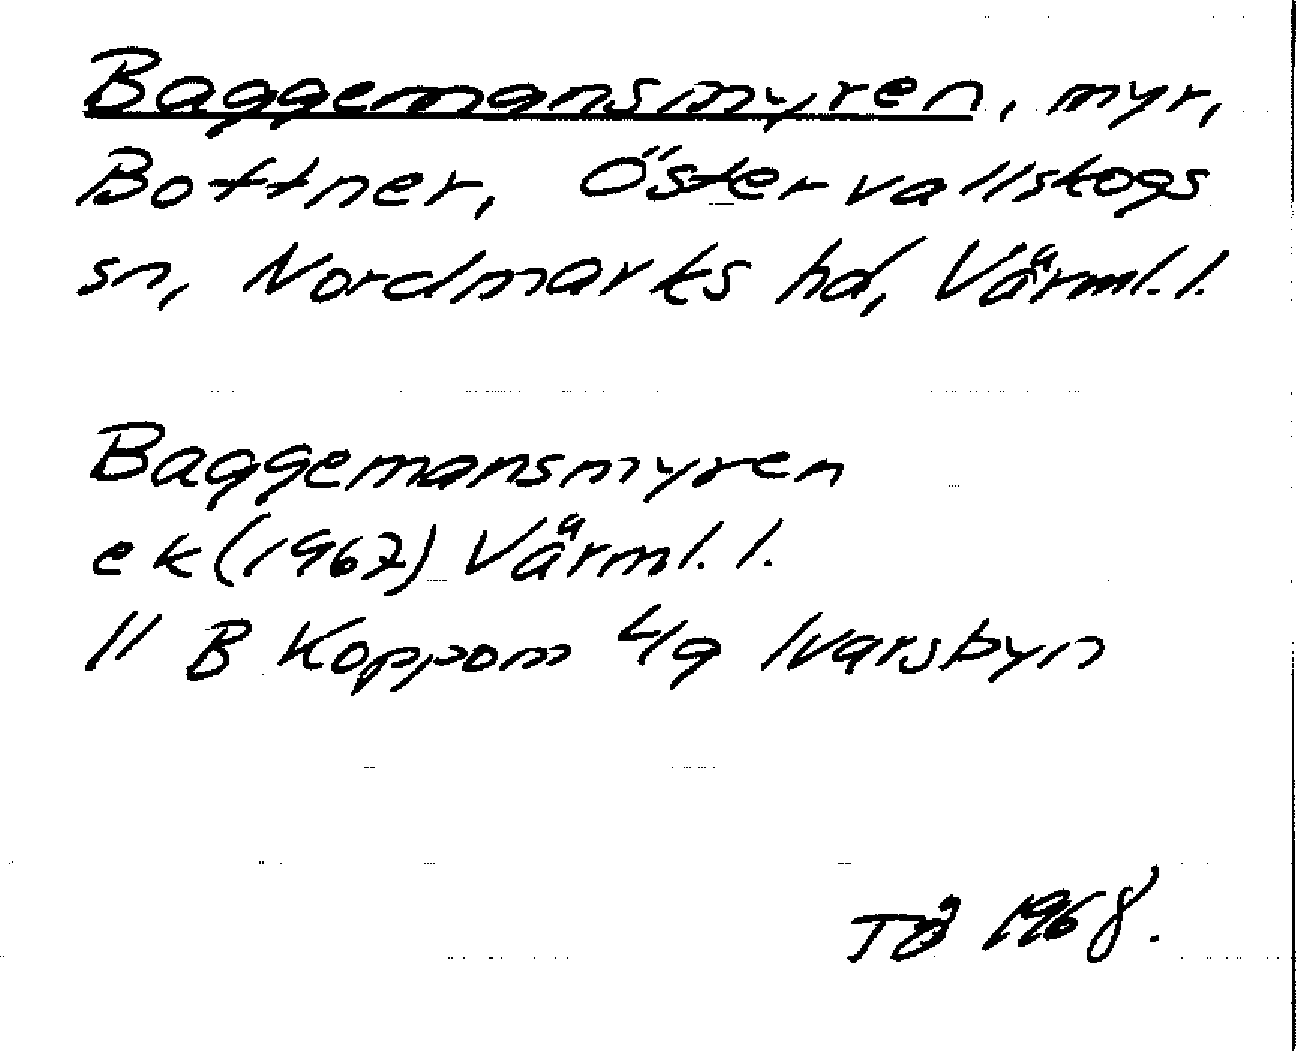 Baggemansmyren, myr,
Bottner, Östervallskogs
sn, Nordmarks hd, Värml. l.
Baggemansmyren
ek (1967) Värml. l.
11 B Koppom 4/g Ivarsbyn
TÖ 1968.